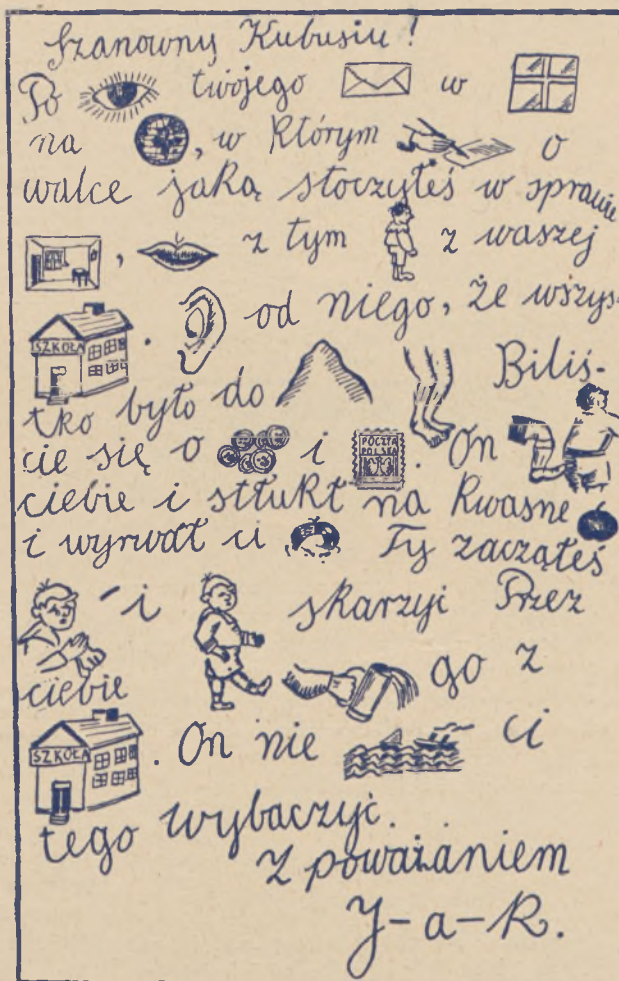 Szanowny Kubusiu!
Po twojego w
na , w którym o
walce jaką stoczyłeś w sprawie
, z tym z waszej
SZKOŁA . od niego, że wszys-
tko było do Biliś-
cie się o i POCZTA POLSKA . On
ciebie i stłukł na kwaśne
i wyrwał ci Ty zacząłeś
i skarżyć Przez
ciebie go z
SZKOŁA . On nie ci
tego wybaczyć.
Z poważaniem
J-a-k.